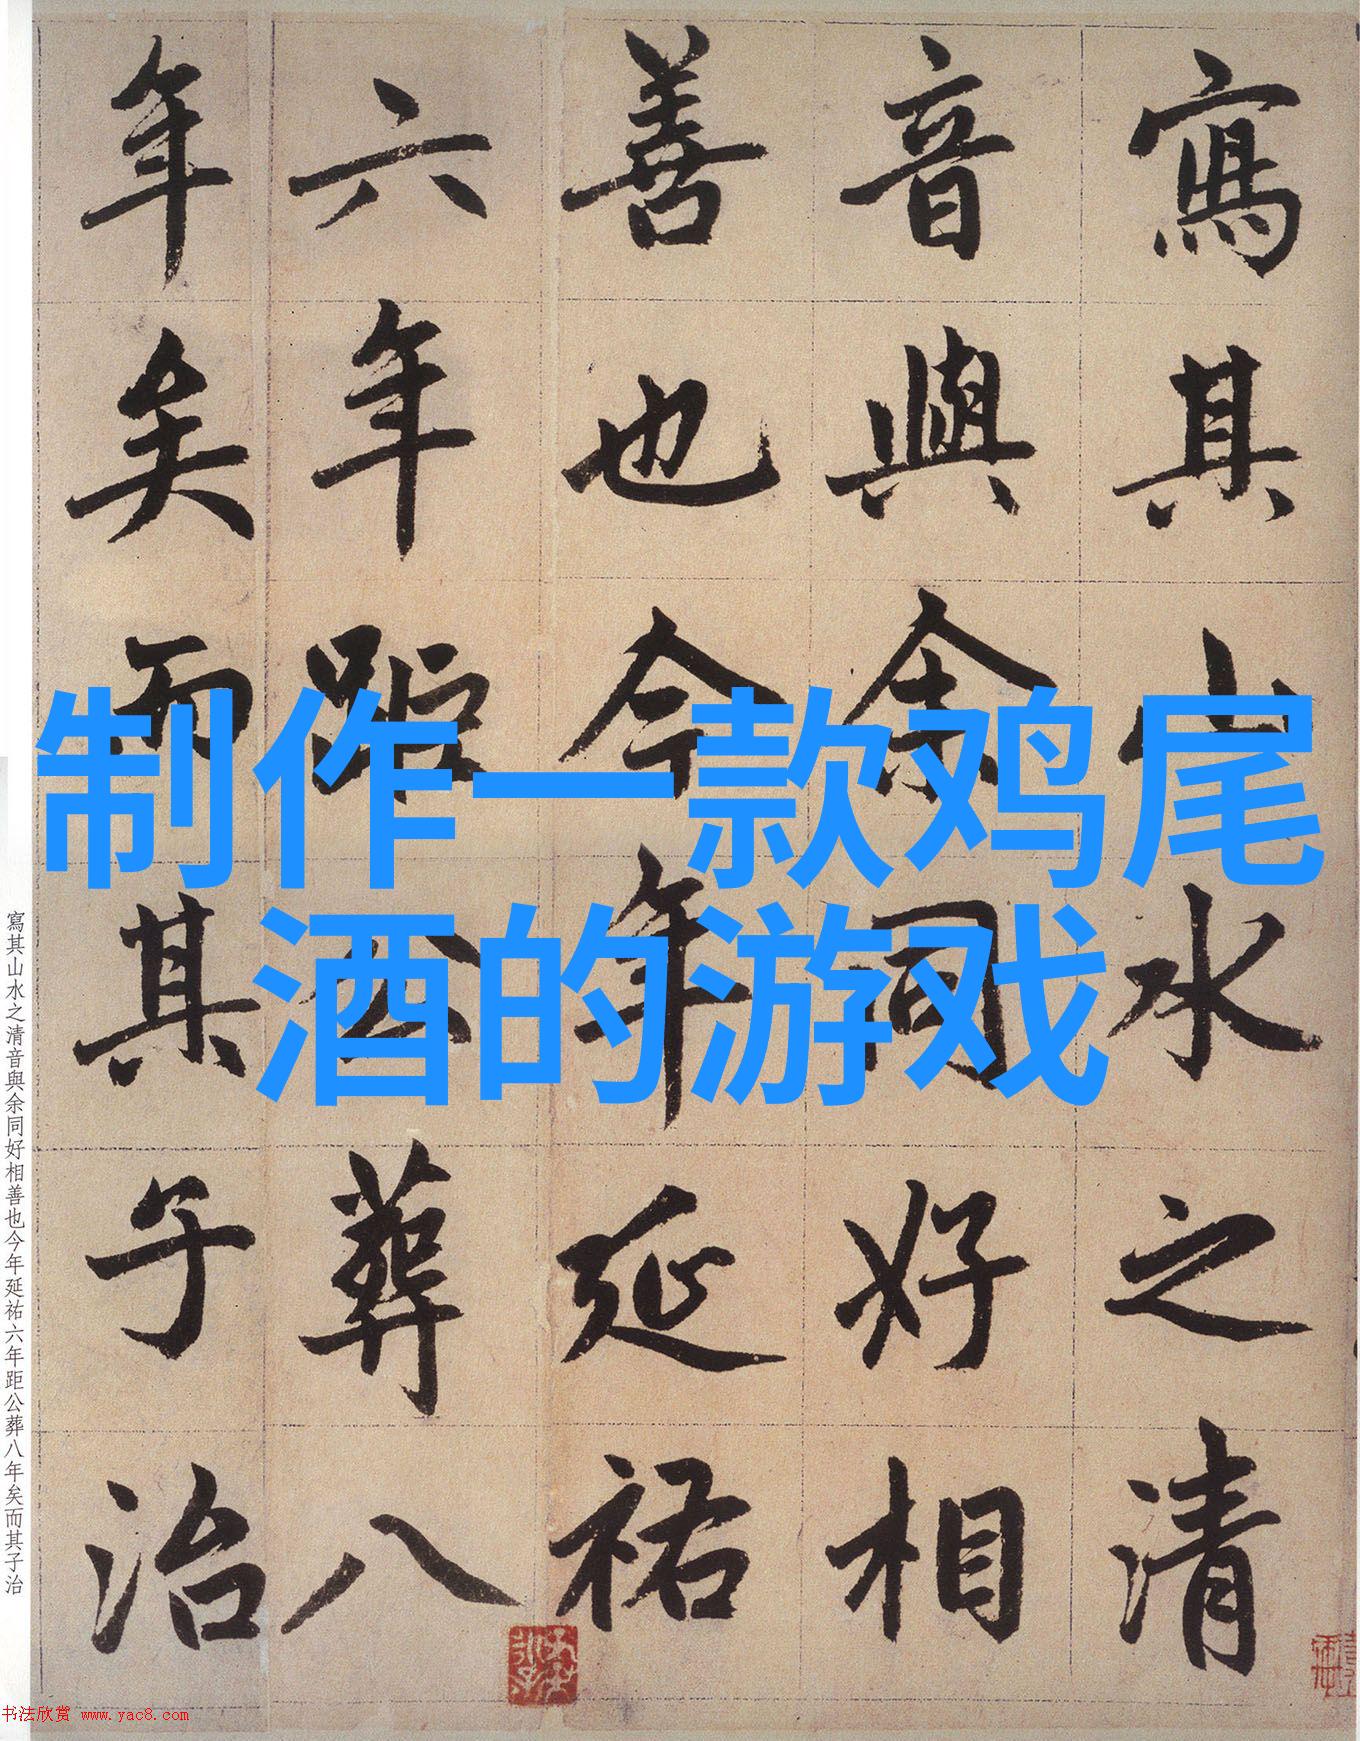 寫其山水之清
音與余同好相
善也今年延祐
六年距公葬八
年矣而其子治
制作一款鸡尾
酒的游戏
寫其山水之清音與余同好相善也今年延祐六年距公葬八年矣而其子治
书法欣赏 www.yac8.com